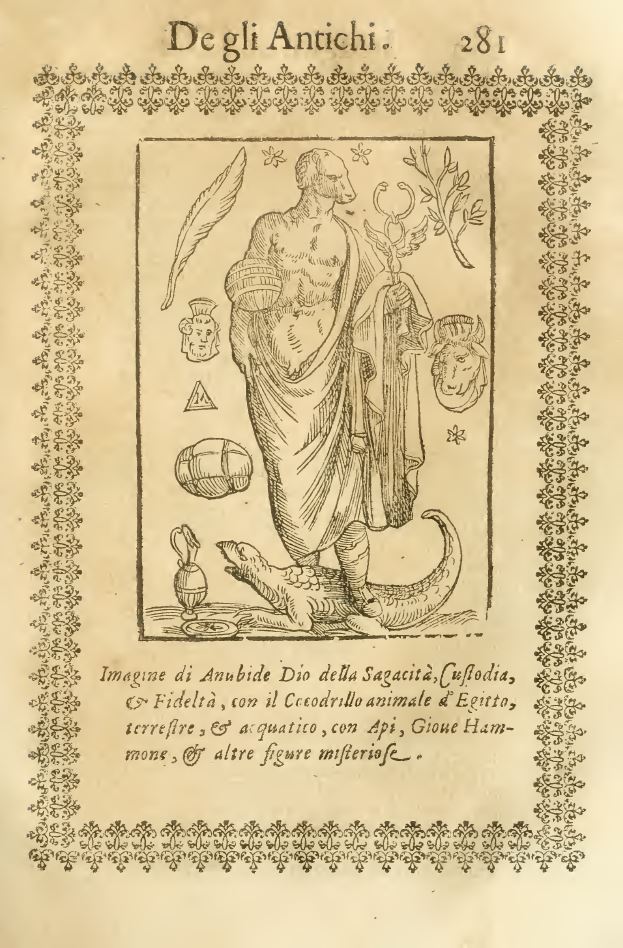 De gli Antichi. 281
Imagine di Anubide Dio della Sagacità, Cuſtodia,
& Fideltà, con il Cocodrillo animale d'Egitto,
terreſtre, & acquatico, con Api, Gioue Ham-
mone, & altre figure miſterioſe.